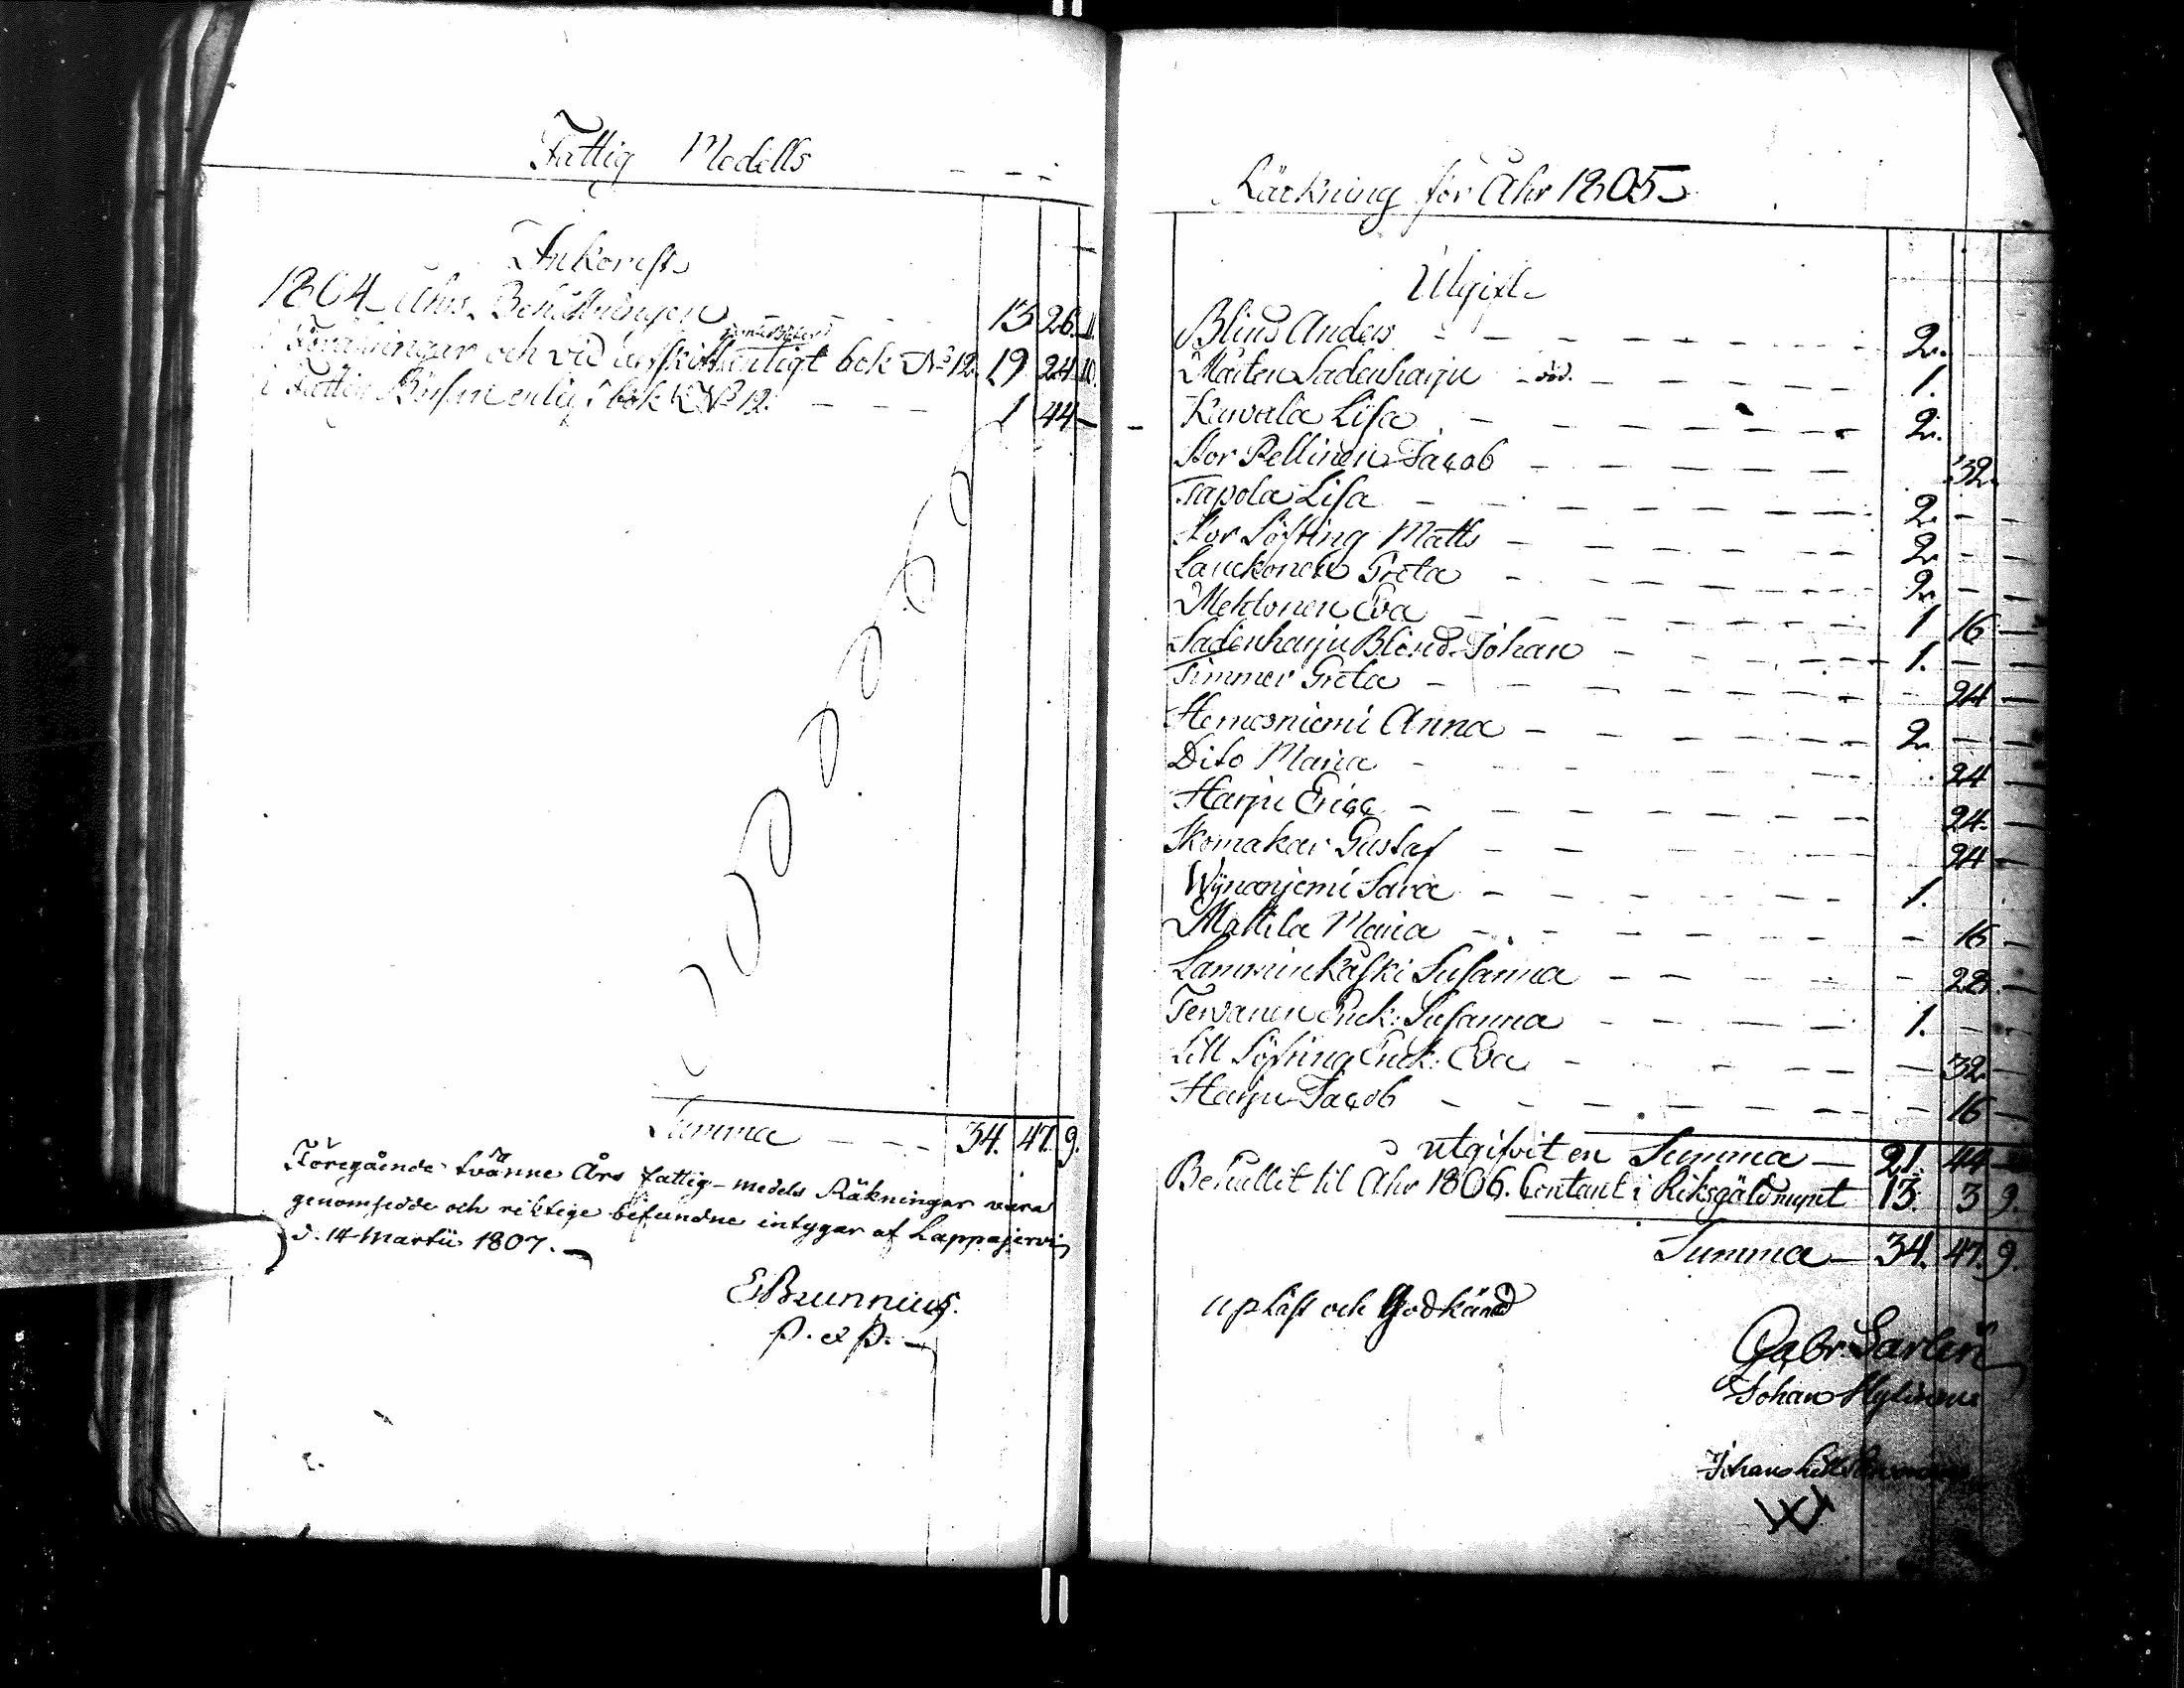 Fattig Medells - - -
Inkomst
1804 Åhrs Behållningen - - - 13 26. 11.
i Föräringar och vid enskilt enligt bok No 12. 19 24 10.
i Fattig Bössan enligt bok No 12. - - - 1 44 -
Summa - - - 34. 47. 9.
Föregående tvänne Års fattig-medels Räkningar vara
genomsedde och riktige befundne intygar af Lappajervi
d. 14 Martii 1807.
E Brunnius.
P. et P.
Räckning för Åhr 1805
Utgift
Blind Anders - - - 2.
Mårten Sadenharju - död. - - - 1.
Kuvala Lisa - - - 2.
Stor Pellinen Jacob - - - 32.
Tapola Lisa - - - 2. - -
Stor Löfting Matts - - - 2. - -
Lauckonen Greta - - - 2. - -
Mehtonen Eva - - - 1 16 -
Sadenharju Blind Johan - - - 1. - -
Timmer Greta - - - 24 -
Hernesniemi Anna - - - 2. - -
Dito Maria - - - 24 -
Harju Ericc - - - 24. -
Skomakar Gustaf - - - 24 -
Wynanjemi Sara - - - 1.
Mattila Maria - - - 16 -
Lamminkaski Susanna - - - 28. -
Tervanen Enck: Susanna - - - 1. - -
Lill Löfting Enck: Eva - - - 32 -
Harju Jacob - - - 16 -
utgifvit en Summa - 21. 44 -
Behållit til Åhr 1806. Contant i Riksgäld mynt 13. 3 9.
Summa - 34. 47. 9.
upläst och Godkänd
Gabr. Sarlin
Johan
Johan